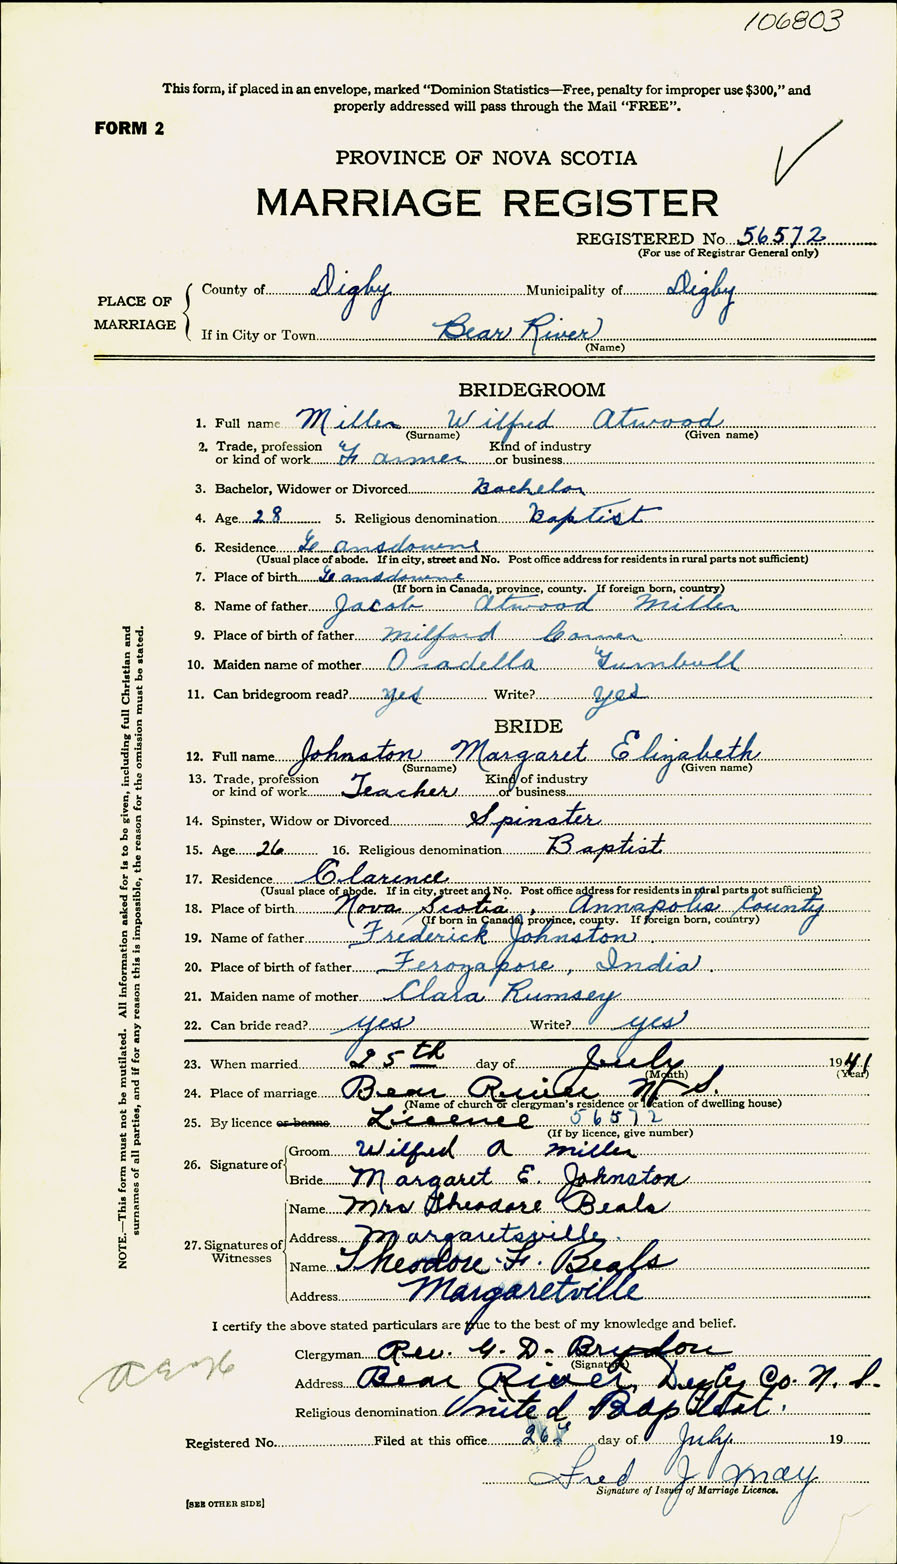 106803
This form, if placed in an envelope, marked "Dominion Statistics—Free, penalty for improper use $300," and
properly addressed will pass through the Mail "FREE".
FORM 2
PROVINCE OF NOVA SCOTIA
MARRIAGE REGISTER
REGISTERED No. 56572
(For use of Registrar General only)
PLACE OF MARRIAGE
County of Digby Municipality of Digby
If in City or Town Bear River
(Name)
BRIDEGROOM
1. Full name Miller Wilfred Atwood
(Surname) (Given name)
2. Trade, profession Kind of industry
or kind of work Farmer or business
3. Bachelor, Widower or Divorced Bachelor
4. Age 28 5. Religious denomination Baptist
6. Residence Lansdowne
(Usual place of abode. If in city, street and No. Post office address for residents in rural parts not sufficient)
7. Place of birth Lansdowne
(If born in Canada, province, county. If foreign born, country)
8. Name of father Jacob Atwood Miller
9. Place of birth of father Milford Corner
10. Maiden name of mother Oradella Turnbull
11. Can bridegroom read? yes Write? yes
BRIDE
12. Full name Johnston Margaret Elizabeth
(Surname) (Given name)
13. Trade, profession Kind of industry
or kind of work Teacher or business
14. Spinster, Widow or Divorced Spinster
15. Age 26 16. Religious denomination Baptist
17. Residence Clarence
(Usual place of abode. If in city, street and No. Post office address for residents in rural parts not sufficient)
18. Place of birth Nova Scotia, Annapolis County
(If born in Canada, province, county. If foreign born, country)
19. Name of father Frederick Johnston.
20. Place of birth of father Ferozapore, India.
21. Maiden name of mother Clara Rumsey
22. Can bride read? yes Write? yes
23. When married 25th day of July 1941
(Month) (Year)
24. Place of marriage Bear River N S.
(Name of church or clergyman's residence or location of dwelling house)
25. By licence or banns Licence 56572
(If by licence, give number)
26. Signature of
Groom Wilfred A Miller
Bride Margaret E. Johnston
27. Signatures of Witnesses
Name Mrs Theodore Beals
Address Margaretsville.
Name Theodore F. Beals
Address Margaretville
I certify the above stated particulars are true to the best of my knowledge and belief.
Clergyman Rev. G. D. Brydon
(Signature)
Address Bear River, Digby Co. N. S.
Religious denomination United Baptist.
Registered No. Filed at this office 26 day of July 19
Fred J May
Signature of Issuer of Marriage Licence.
[SEE OTHER SIDE]
NOTE.—This form must not be mutilated. All information asked for is to be given, including full Christian and
surnames of all parties, and if for any reason this is impossible, the reason for the omission must be stated.